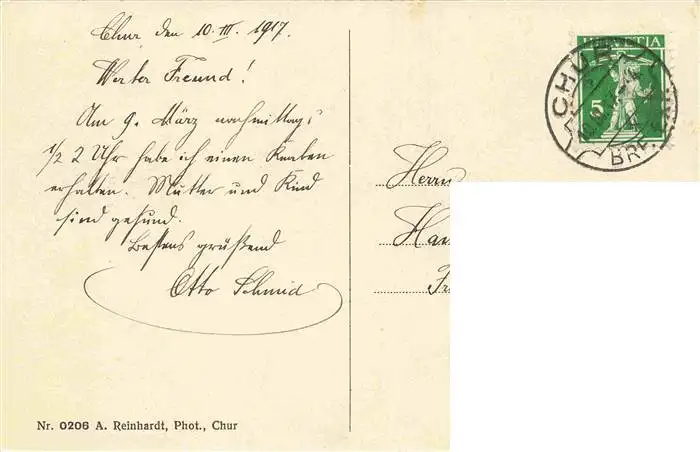 Chur den 10. III. 1917.
Werter Freund!
Am 9. März nachmittags
1/2 2 Uhr habe ich einen Knaben
erhalten. Mutter und Kind
sind gesund.
Bestens grüßend
Otto Schmid
Nr. 0206 A. Reinhardt, Phot., Chur
HELVETIA
5
CHUR
Herrn